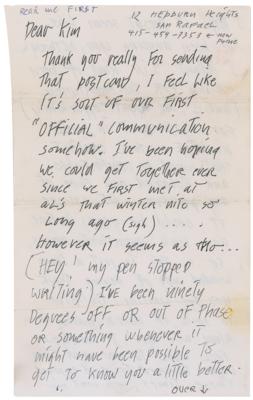 READ ME FIRST
12 HEPBURN Heights
SAN RAFAEL
415-454-7353 ← new
Phone
Dear Kim
Thank you really for sending
that postcard, I feel like
it's sort of our first
"OFFICIAL" communication
somehow. I've been hoping
we could get together ever
since we first met at
AL'S that winter nite so
long ago (sigh) . . . .
However it seems as tho...
(HEY! my pen stopped
writing) I've been ninety
degrees off or out of phase
or something whenever it
might have been possible to
get to know you a little better.
over ↓